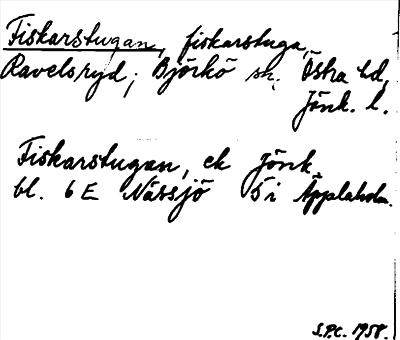 Fiskarstugan, fiskarstuga,
Ravelsryd, Björkö sn, Östra hd,
Jönk. l.
Fiskarstugan, ek Jönk.
bl. 6 E Nässjö 5 i Äpplaholm.
S.P.C. 1958.